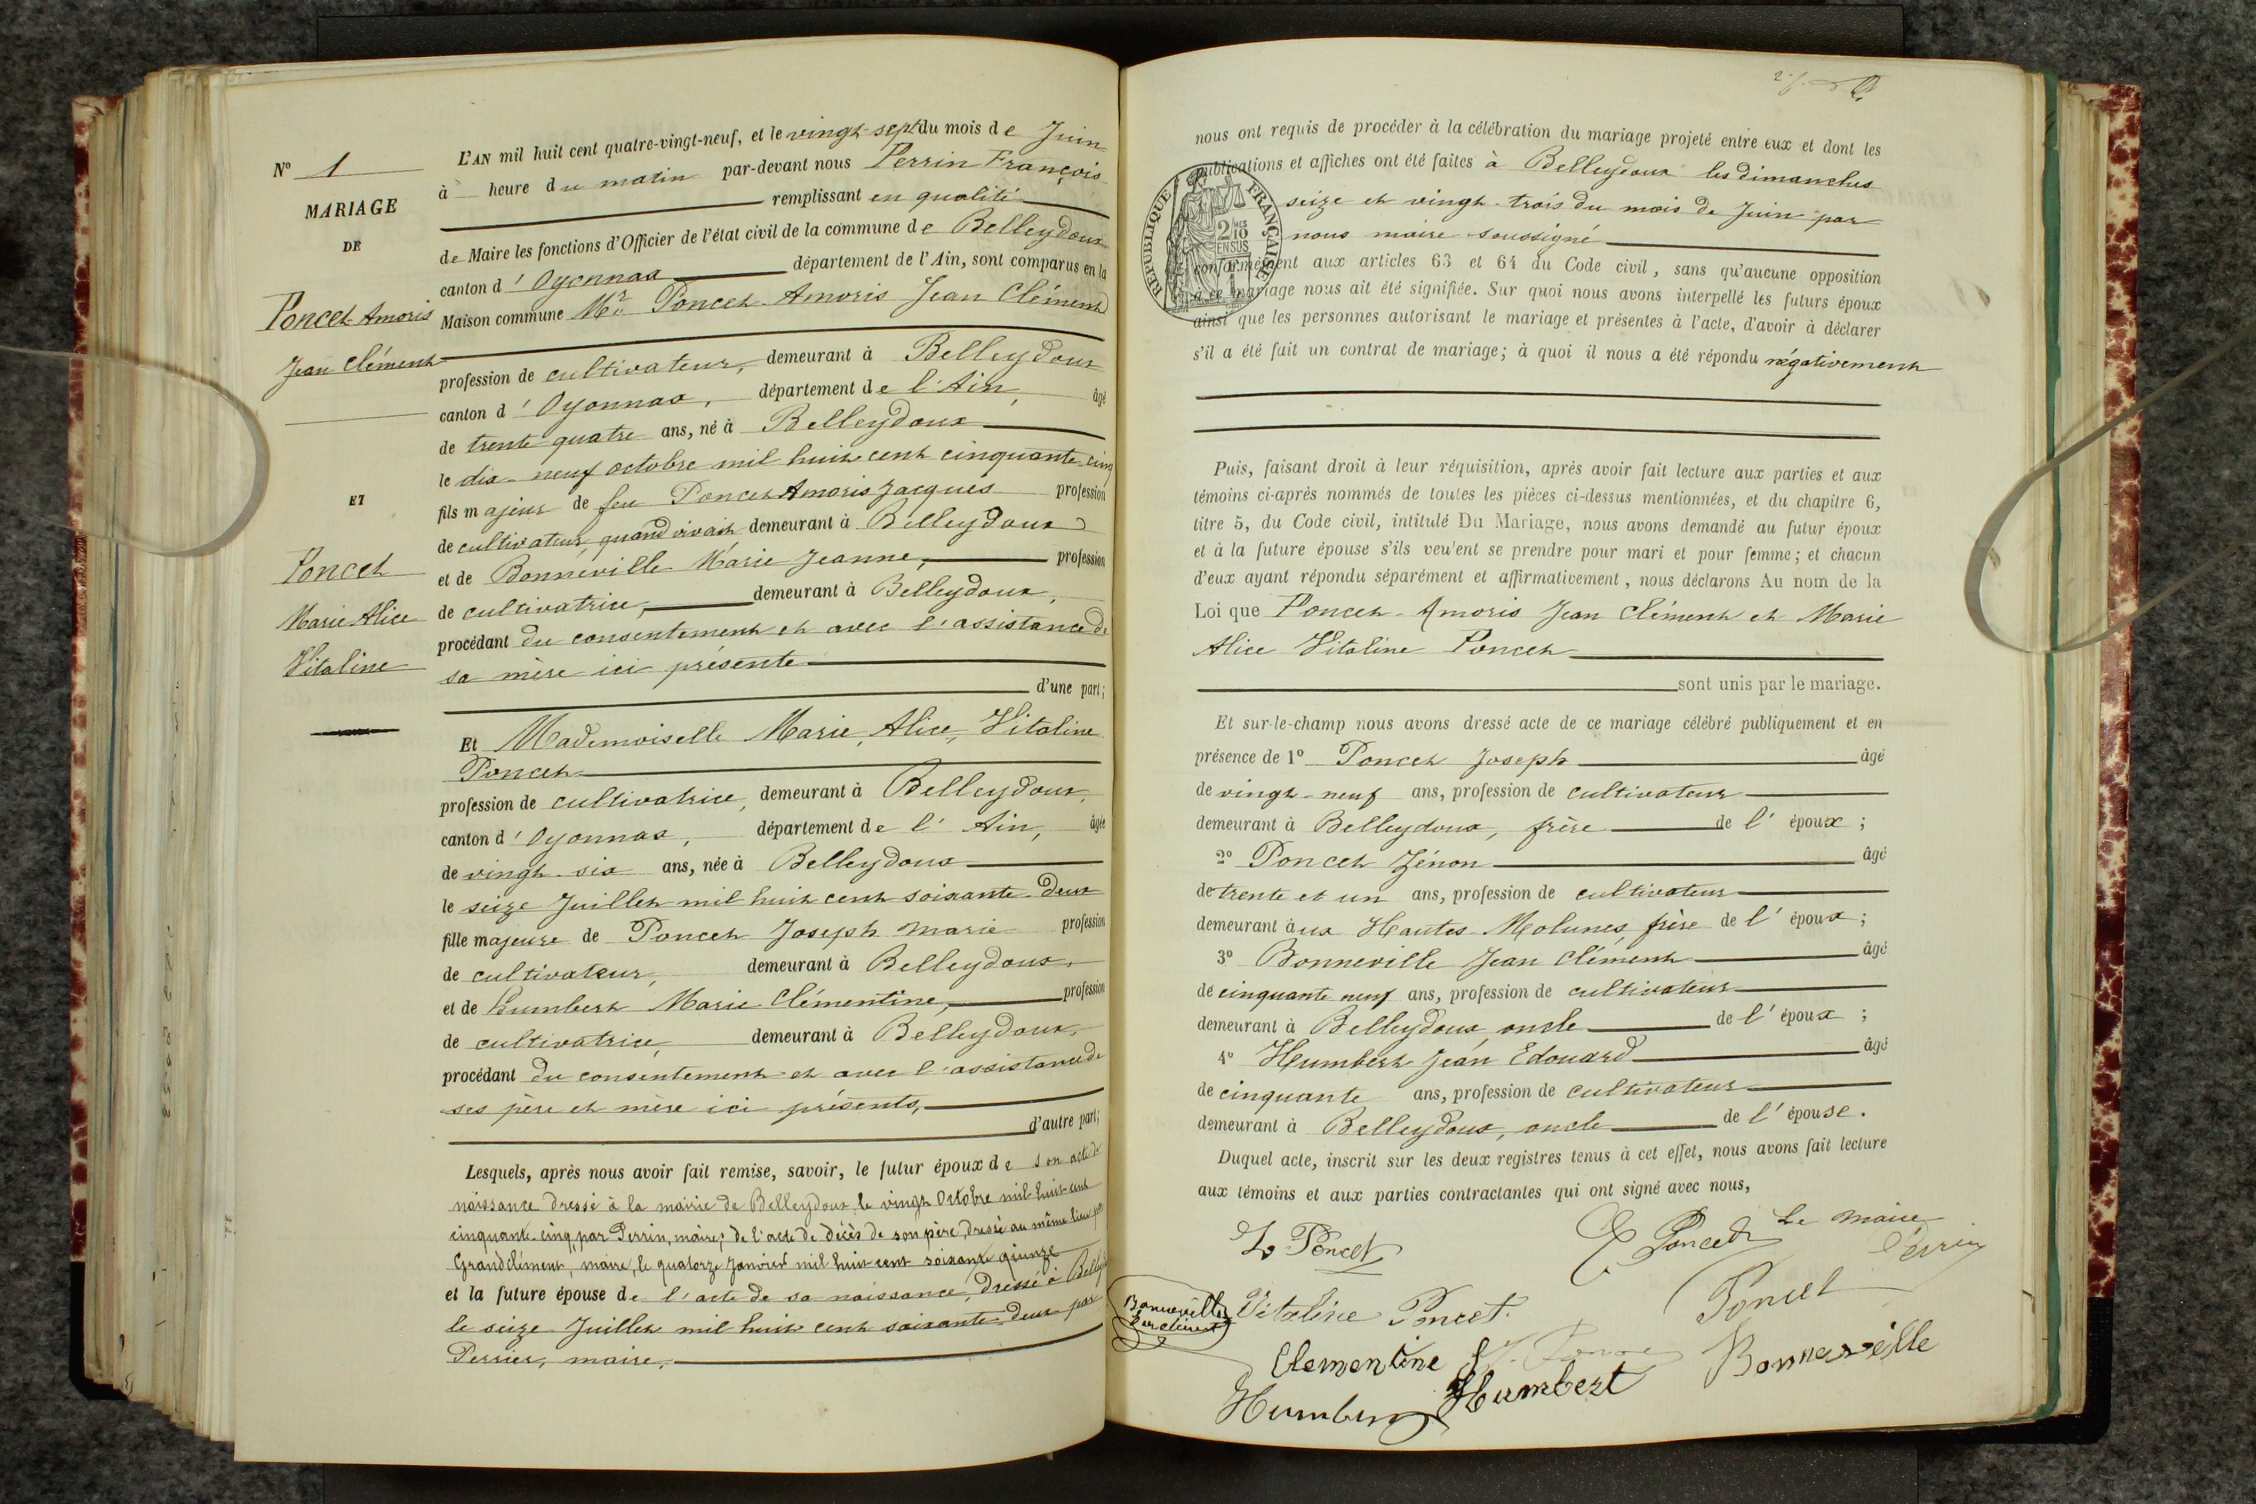 N° 1
MARIAGE
DE
Poncet Amoris
Jean Clément
ET
Poncet
Marie Alice
Vitaline
L'AN mil huit cent quatre-vingt-neuf, et le vingt-sept du mois de Juin
à heure du matin par-devant nous Perrin François
remplissant en qualité
de Maire les fonctions d'Officier de l'état civil de la commune de Belleydoux
canton d'Oyonnax département de l'Ain, sont comparus en la
Maison commune Mr Poncet-Amoris Jean Clément
profession de cultivateur, demeurant à Belleydoux
canton d'Oyonnax, département de l'Ain, âgé
de trente quatre ans, né à Belleydoux
le dix-neuf octobre mil huit cent cinquante-cinq
fils majeur de feu Poncet Amoris Jacques profession
de cultivateur quand vivait demeurant à Belleydoux
et de Bonneville Marie Jeanne, profession
de cultivatrice, demeurant à Belleydoux,
procédant du consentement et avec l'assistance de
sa mère ici présente
d'une part;
Et Mademoiselle Marie, Alice, Vitaline
Poncet
profession de cultivatrice, demeurant à Belleydoux,
canton d'Oyonnax, département de l'Ain, âgée
de vingt-six ans, née à Belleydoux
le seize Juillet mil huit cent soixante-deux
fille majeure de Poncet Joseph Marie profession
de cultivateur, demeurant à Belleydoux,
et de Humbert Marie Clémentine, profession
de cultivatrice, demeurant à Belleydoux,
procédant du consentement et avec l'assistance de
ses père et mère ici présents,
d'autre part;
Lesquels, après nous avoir fait remise, savoir, le futur époux de son acte de
naissance dressé à la mairie de Belleydoux le vingt Octobre mil huit cent
cinquante-cinq, par Perrin, maire; de l'acte de décès de son père, dressé au même lieu par
Grandclément, maire, le quatorze Janvier mil huit cent soixante quinze
et la future épouse de l'acte de sa naissance, dressé à Belleyd
le seize Juillet mil huit cent soixante-deux par
Perrier, maire,
nous ont requis de procéder à la célébration du mariage projeté entre eux et dont les
publications et affiches ont été faites à Belleydoux les dimanches
seize et vingt-trois du mois de Juin par
nous maire soussigné
RÉPUBLIQUE FRANÇAISE
2/10 EN SUS
conformément aux articles 63 et 64 du Code civil, sans qu'aucune opposition
à ce mariage nous ait été signifiée. Sur quoi nous avons interpellé les futurs époux
ainsi que les personnes autorisant le mariage et présentes à l'acte, d'avoir à déclarer
s'il a été fait un contrat de mariage; à quoi il nous a été répondu négativement
Puis, faisant droit à leur réquisition, après avoir fait lecture aux parties et aux
témoins ci-après nommés de toutes les pièces ci-dessus mentionnées, et du chapitre 6,
titre 5, du Code civil, intitulé Du Mariage, nous avons demandé au futur époux
et à la future épouse s'ils veulent se prendre pour mari et pour femme; et chacun
d'eux ayant répondu séparément et affirmativement, nous déclarons Au nom de la
Loi que Poncet-Amoris Jean Clément et Marie
Alice Vitaline Poncet
sont unis par le mariage.
Et sur-le-champ nous avons dressé acte de ce mariage célébré publiquement et en
présence de 1° Poncet Joseph âgé
de vingt-neuf ans, profession de cultivateur
demeurant à Belleydoux, frère de l'époux;
2° Poncet Zénon âgé
de trente et un ans, profession de cultivateur
demeurant aux Hautes Molunes frère de l'époux;
3° Bonneville Jean Clément âgé
de cinquante neuf ans, profession de cultivateur
demeurant à Belleydoux, oncle de l'époux;
4° Humbert Jean Edouard âgé
de cinquante ans, profession de cultivateur
demeurant à Belleydoux, oncle de l'épouse.
Duquel acte, inscrit sur les deux registres tenus à cet effet, nous avons fait lecture
aux témoins et aux parties contractantes qui ont signé avec nous,
Poncet
Poncet
Le maire
Perrin
Bonneville
Vitaline Poncet.
Poncet
Clementine
Humbert
Humbert
Bonneville